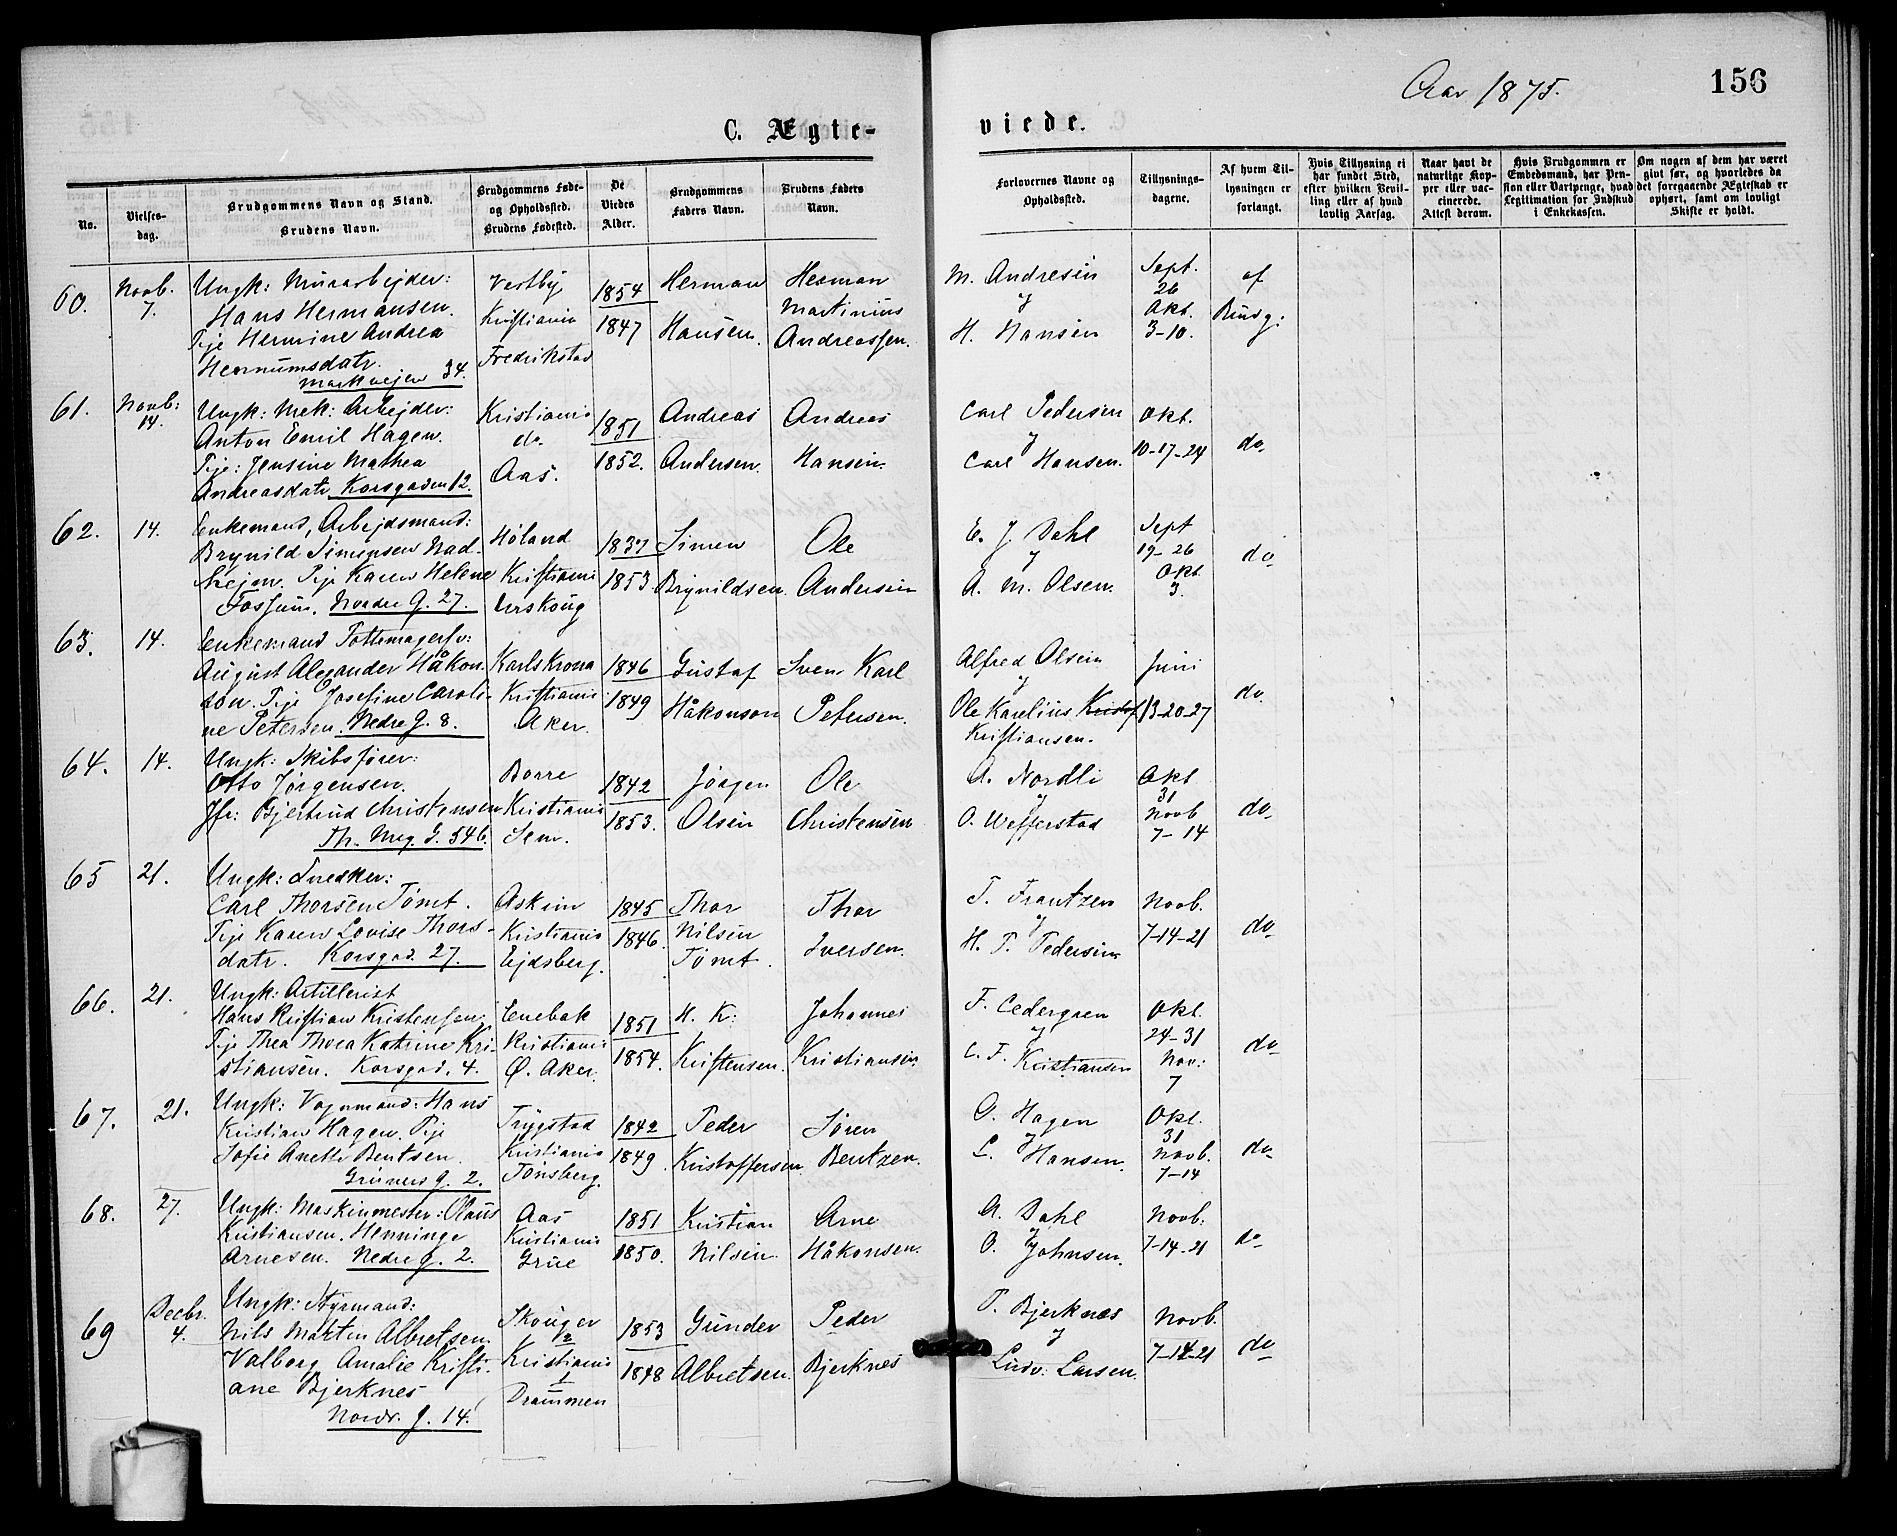 Aar 1875.
156
C. Ægte-
viede.
No.
Vielses-
dag.
Brudgommens Navn og Stand.
Brudens Navn.
Brudgommens Føde-
og Opholdssted.
Brudens Fødested.
De
Viedes
Alder.
Brudgommens
Faders Navn.
Brudens Faders
Navn.
Forlovernes Navne og
Opholdssted.
Tillysnings-
dagene.
Af hvem Til-
lysningen er
forlangt.
Hvis Tillysning ei
har fundet Sted,
efter hvilken Bevil-
ling eller af hvad
lovlig Aarsag.
Naar havt de
naturlige Kop-
per eller vac-
cinerede.
Attest derom.
Hvis Brudgommen er
Embedsmand, har Pen-
sion eller Vartpenge, hvad
Legitimation for Indskud
i Enkekassen.
Om nogen af dem har været
givt før, og hvorledes da
det foregaaende Ægteskab er
ophørt, samt om lovligt
Skifte er holdt.
60.
Novb.
7.
Ungk: Murarbejder:
Hans Hermansen.
Pije Hermine Andrea
Hermumsdatr.
Markvejen 34.
Vestby
Kristiania
Fredrikstad
1854
1847
Herman
Hansen.
Herman
Martinius
Andreassen.
M. Andresen
H. Hansen
Sept.
26
Okt.
3-10.
af
Brudg:
61.
Novb:
14.
Ungk: Mek: Arbejder:
Anton Emil Hagen.
Pije: Jensine Mathea
Andreasdatr. Korsgaden 12.
Kristiania
do.
Aas.
1851
1852.
Andreas
Andersen.
Andreas
Hansen.
Carl Pedersen
Carl Hansen.
Okt.
10-17-24
do
62.
14.
Enkemand, Arbejdsmand:
Brynild Simensen Nad-
Pije Karen Helene
Fossum. Nordre G. 27.
Høland
Kristiania
Urskoug
1837
1853
Simen
Brynildsen.
Ole
Andersen
E. J. Dahl
A. M. Olsen.
Sept
19-26
Okt.
3.
do
63.
14.
Enkemand Pottemagersv:
August Alexander Håkon-
son. Pije Josefine Caroli-
ne Petersen. Nedre G. 8.
Karlskrona
Kristiania
Aker.
1846
1849
Gustaf
Håkonson
Sven Karl
Petersen.
Alfred Olsen
Ole Karelius Kristof
Kristiansen.
Juni
13-20-27
do
64.
14.
Ungk: Skibsfører:
Otto Jørgensen.
Jfr: Gjertrud Christensen
Th. Mey. G. 546.
Borre
Kristiania
Sem.
1842
1853.
Jørgen
Olsen
Ole
Christensen
A. Nordli
O. Wefferstad
Okt
31
Novb
7-14
do
65
21.
Ungk: Snedker:
Carl Thorsen Tømt.
Pije Karen Lovise Thors-
datr. Korsgad. 27.
Askim
Kristiania
Ejdsberg.
1845
1846.
Thor
Nilsen
Tømt.
Thor
Iversen.
T. Frantzen
H. P. Pedersen
Novb.
7-14-21
do
66.
21.
Ungk: Artillerist
Hans Kristian Kristensen.
Pije Thea Thora Katrine Kri-
stiansen. Korsgad. 4.
Enebak
Kristiania
Ø. Aker.
1851
1854.
H. K.
Kristensen.
Johannes
Kristiansen.
F. Cedergren
C. F. Kristiansen
Okt.
24-31
Nov:
7
do
67.
21.
Ungk: Vognmand: Hans
Kristian Hagen. Pije
Sofie Anette Bentsen.
Grüners g. 2.
Trygstad
Kristiania
Tønsberg.
1842
1849.
Peder
Kristoffersen.
Søren
Bentzen.
O. Hagen
L. Hansen.
Okt.
31
Novb.
7-14
do
68.
27.
Ungk: Maskinmester: Olaus
Kristiansen. Henninge
Arnesen. Nedre g. 2.
Aas
Kristiania
Grue
1851
1850.
Kristian
Nilsen.
Arne
Håkonsen.
A. Dahl
O. Johnsen.
Novb.
7-14-21
do
69
Decbr.
4.
Ungk: Styrmand:
Nils Martin Albretsen.
Valborg Amalie Kristi-
ane Bjerknes
Nordr. g. 14.
Skouger
Kristiania
Drammen
1853
1848
Gunder
Albretsen.
Peder
Bjerknes
P. Bjerknes
Ludv: Larsen.
Novb.
7-14-21
do